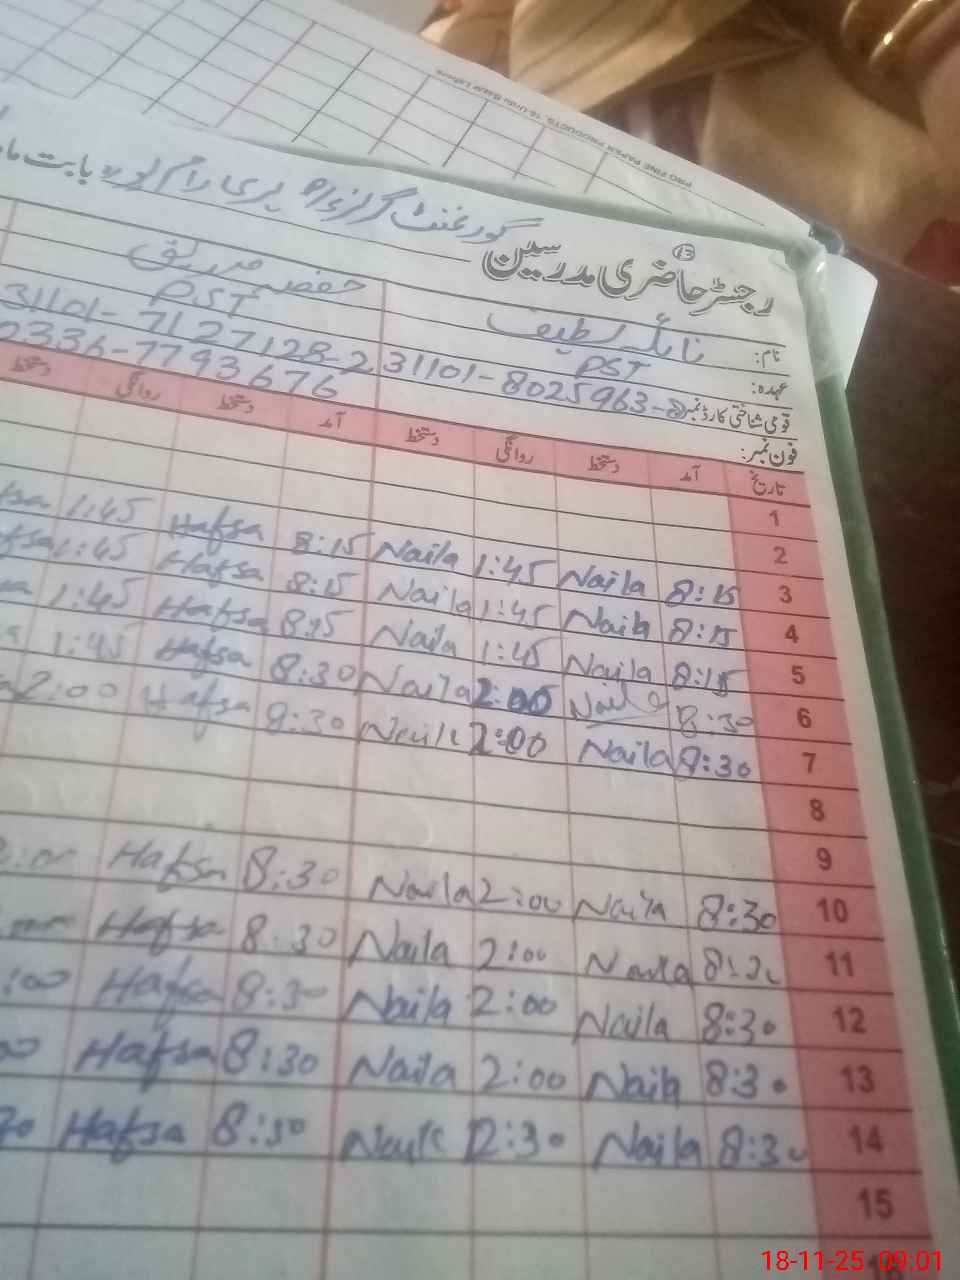 PRO FINE PAPER PRODUCTS, 16-Urdu Bazar Lahore
13
رجسٹر حاضری مدرسین گورنمنٹ گرلز پرائمری رام پورہ بابت ماہ
نام: نائلہ لطیف حفصہ صدیق
عہدہ: PST PST
قومی شناختی کارڈ نمبر: 31101-8025963-2 31101-7127128-2
فون نمبر: 0336-7793676
تاریخ آمد دستخط روانگی دستخط آمد دستخط روانگی دستخط
1
2
3 8:15 Naila 1:45 Naila 8:15 Hafsa 1:45
4 8:15 Naila 1:45 Naila 8:15 Hafsa 1:45
5 8:15 Naila 1:45 Naila 8:15 Hafsa 1:45
6 8:30 Naila 2:00 Naila 8:30 Hafsa 1:45
7 8:30 Naila 2:00 Naila 8:30 Hafsa 2:00
8
9
10 8:30 Naila 2:00 Naila 8:30 Hafsa
11 8:30 Naila 2:00 Naila 8:30 Hafsa
12 8:30 Naila 2:00 Naila 8:30 Hafsa
13 8:30 Naila 2:00 Naila 8:30 Hafsa
14 8:30 Naila 12:30 Naila 8:30 Hafsa
15
18-11-25 09:01